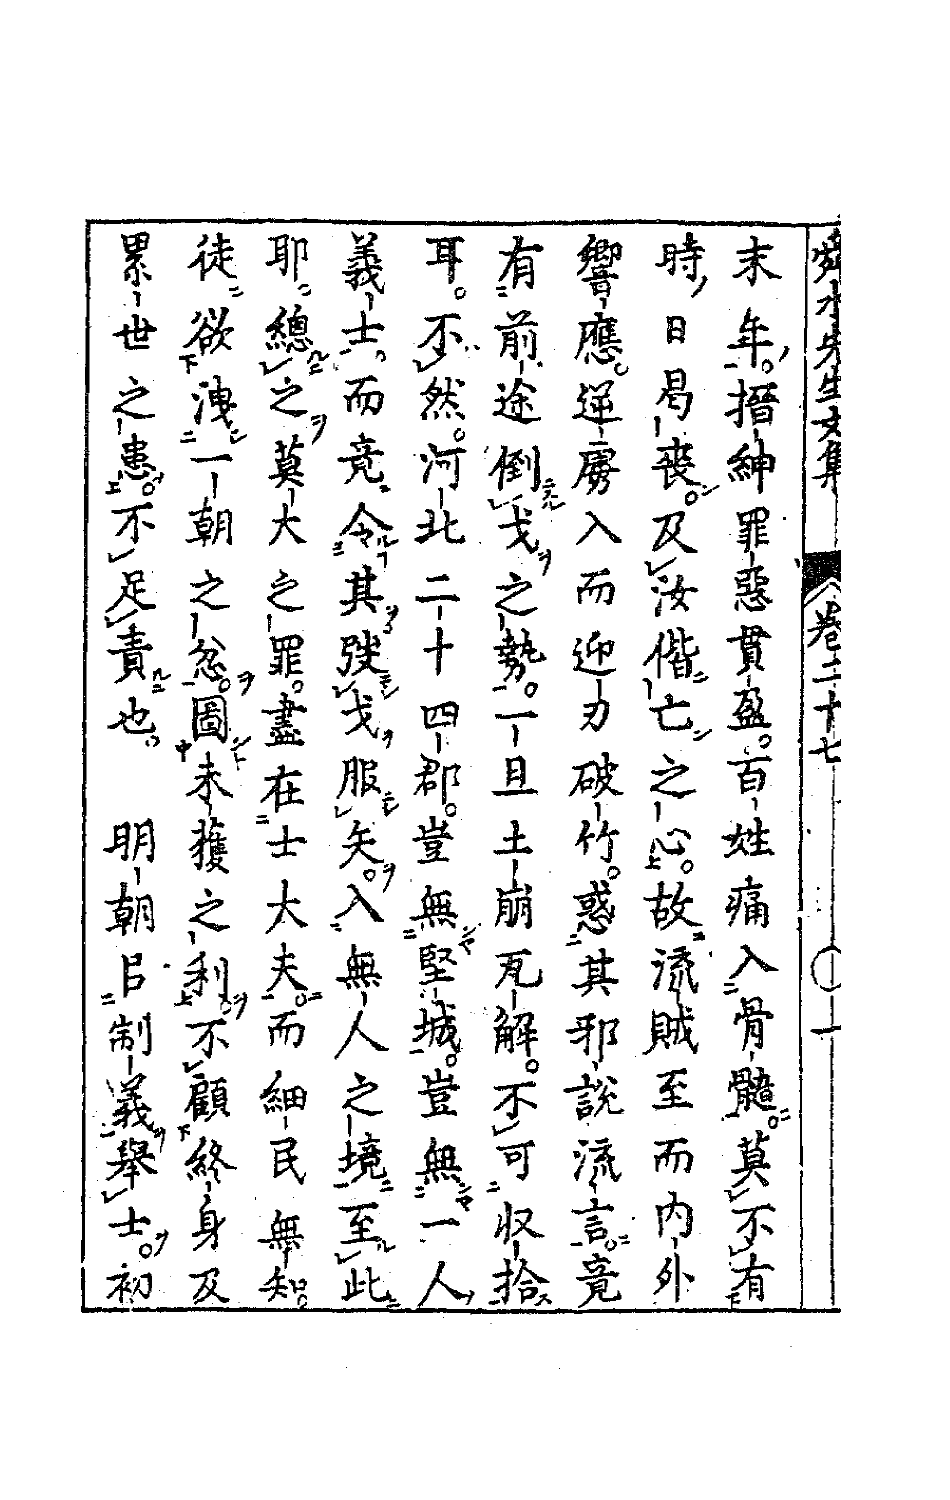 舜水先生文集　卷二十七　一
末年。搢紳罪惡貫盈。百姓痛入骨髓。莫不有
時日曷喪。及汝偕亡之心。故流賊至而內外
響應。逆虜入而迎刃破竹。惑其邪說流言。竟
有前途倒戈之勢。一旦土崩瓦解。不可收拾
耳。不然。河北二十四郡。豈無堅城。豈無一人
義士。而竟令其弢戈服矢。入無人之境至此
耶。總之莫大之罪。盡在士大夫。而細民無知。
徒欲洩一朝之忿。圖未獲之利。不顧終身及
累世之患。不足責也。　明朝以制義舉士。初